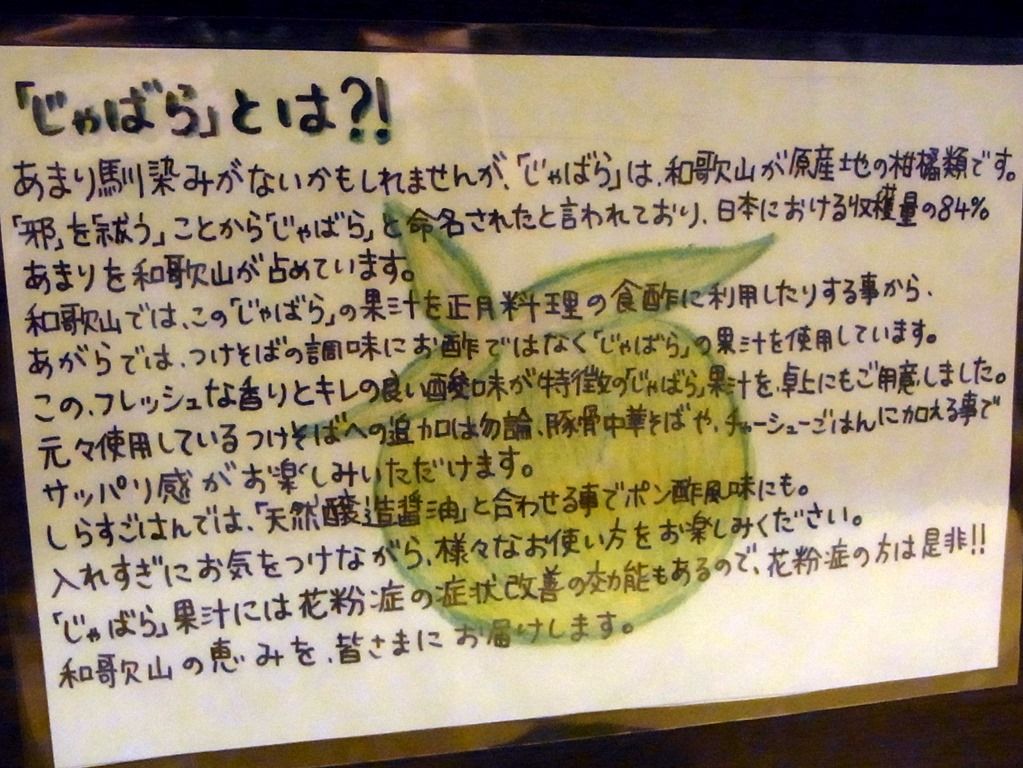 「じゃばら」とは?!
あまり馴染みがないかもしれませんが、「じゃばら」は、和歌山が原産地の柑橘類です。
「邪」を「祓う」ことから「じゃばら」と命名されたと言われており、日本における収穫量の84%
あまりを和歌山が占めています。
和歌山では、この「じゃばら」の果汁を正月料理の食酢に利用したりする事から、
あがらでは、つけそばの調味にお酢ではなく「じゃばら」の果汁を使用しています。
この、フレッシュな香りとキレの良い酸味が特徴の「じゃばら」果汁を、卓上にもご用意しました。
元々使用しているつけそばへの追加は勿論、豚骨中華そばや、チャーシューごはんに加える事で
サッパリ感がお楽しみいただけます。
しらすごはんでは、「天然醸造醤油」と合わせる事でポン酢風味にも。
入れすぎにお気をつけながら、様々なお使い方をお楽しみください。
「じゃばら」果汁には花粉症の症状改善の効能もあるので、花粉症の方は是非!!
和歌山の恵みを、皆さまにお届けします。